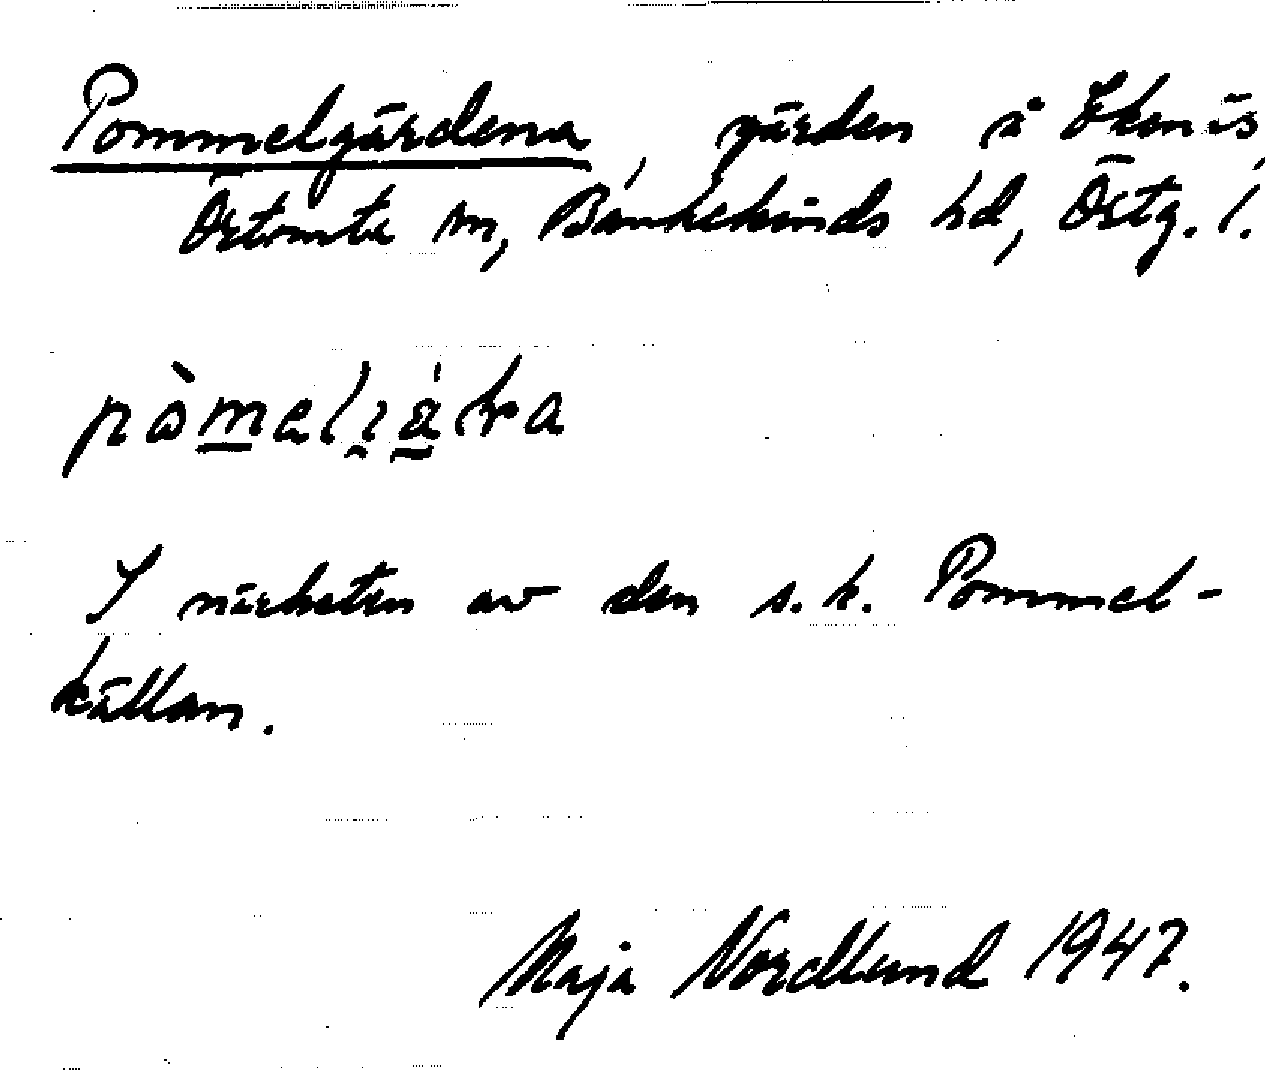 Pommelgärdena, gärden å Ekenäs
Östomte sn, Bankekinds hd, Östg. l.
I närheten av den s.k. Pommel-
källan.
Maja Nordlund 1947.